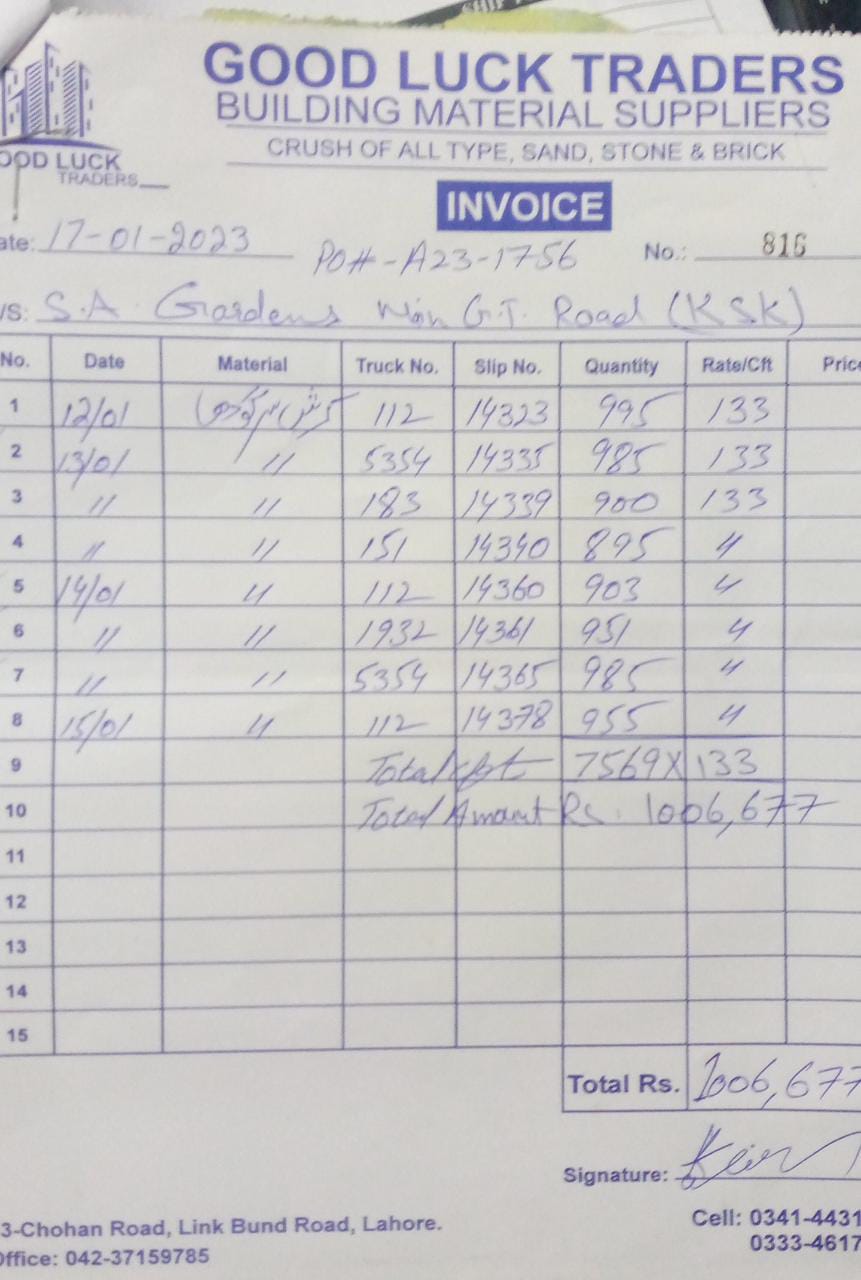 SHIP
GOOD LUCK TRADERS
BUILDING MATERIAL SUPPLIERS
CRUSH OF ALL TYPE, SAND, STONE & BRICK
OOD LUCK
TRADERS
INVOICE
ate: 17-01-2023 PO#-A23-1756 No.: 816
/S: S.A. Gardens Main G.T. Road (KSK)
No. Date Material Truck No. Slip No. Quantity Rate/Cft Price
1 12/01 کرش 112 14323 995 133
2 13/01 〃 5354 14335 985 133
3 〃 〃 183 14339 900 133
4 〃 〃 151 14340 895 〃
5 14/01 〃 112 14360 903 〃
6 〃 〃 1932 14361 951 〃
7 〃 〃 5354 14365 985 〃
8 15/01 〃 112 14378 955 〃
9 Total cft 7569X133
10 Total Amount Rs. 1006,677
11
12
13
14
15
Total Rs. 1006,677
Signature:
3-Chohan Road, Link Bund Road, Lahore. Cell: 0341-4431
Office: 042-37159785 0333-4617